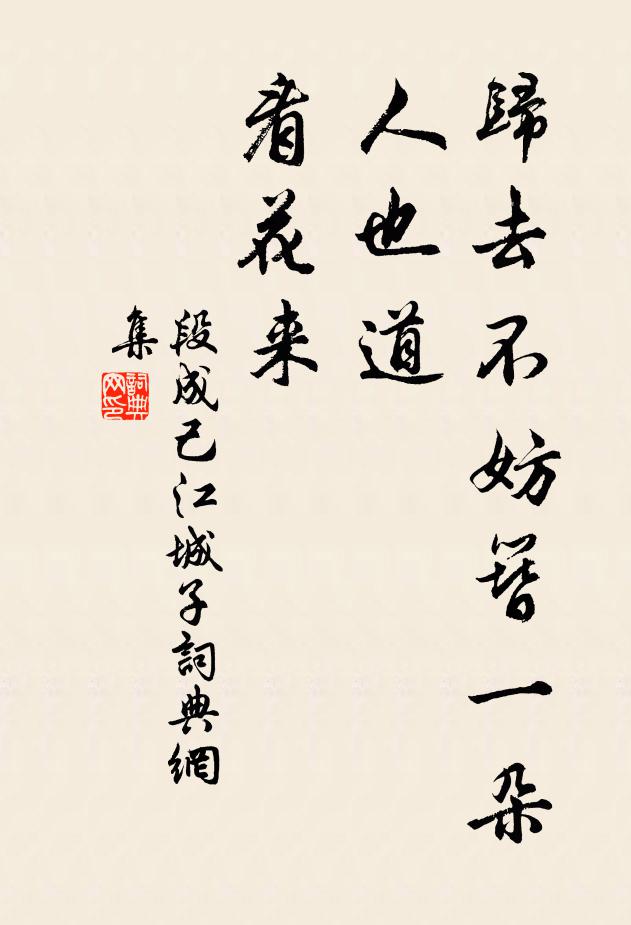 歸去不妨簪一朵
人也道
看花来
段成己江城子詞典網
集
詞典网印